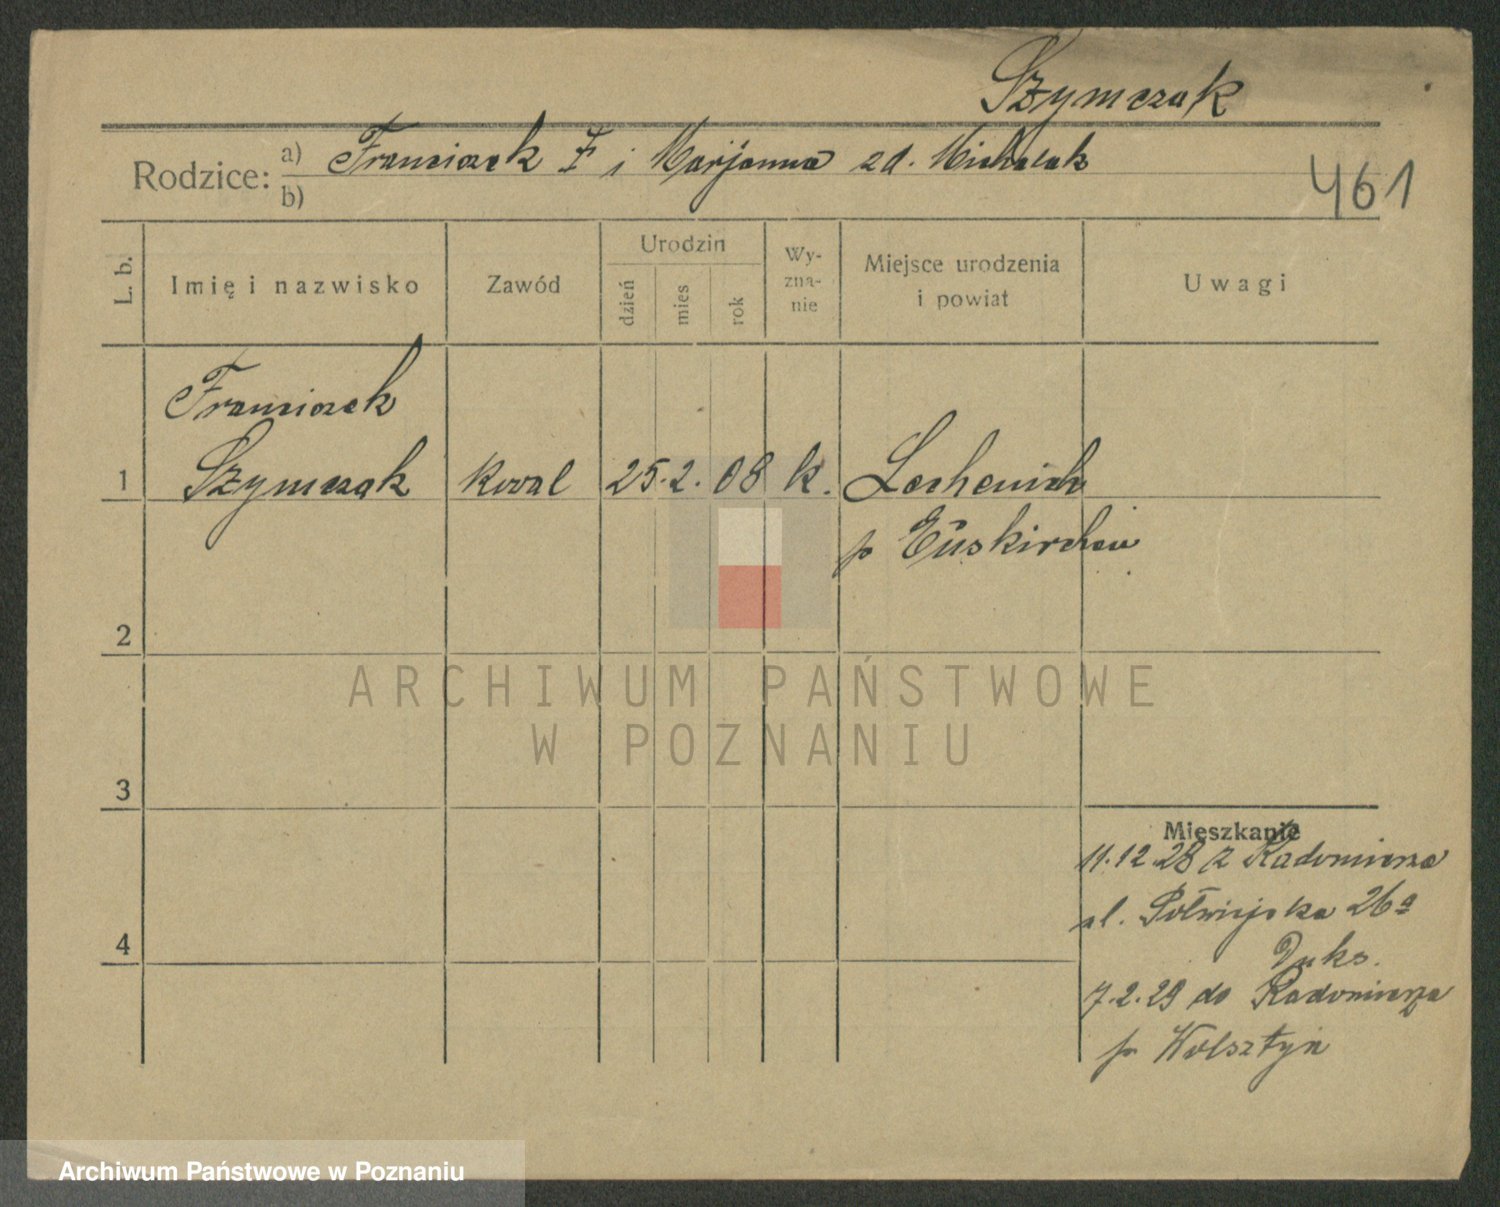 Szymczak
Rodzice: a) Franciszek i Marjanna zd. Michalak
b)
461
L. b.
Imię i nazwisko
Zawód
Urodzin
dzień
mies
rok
Wy-
zna-
nie
Miejsce urodzenia
i powiat
Uwagi
Franciszek
1 Szymczak kowal 25. 2. 08 k. Lechenich
p Euskirchen
2
3
4
Mieszkanie
11.12.28 z Radomierza
ul. Półwiejska 26a
7.2.29 do Radomierza
p Wolsztyn
ARCHIWUM PAŃSTWOWE
W POZNANIU
Archiwum Państwowe w Poznaniu